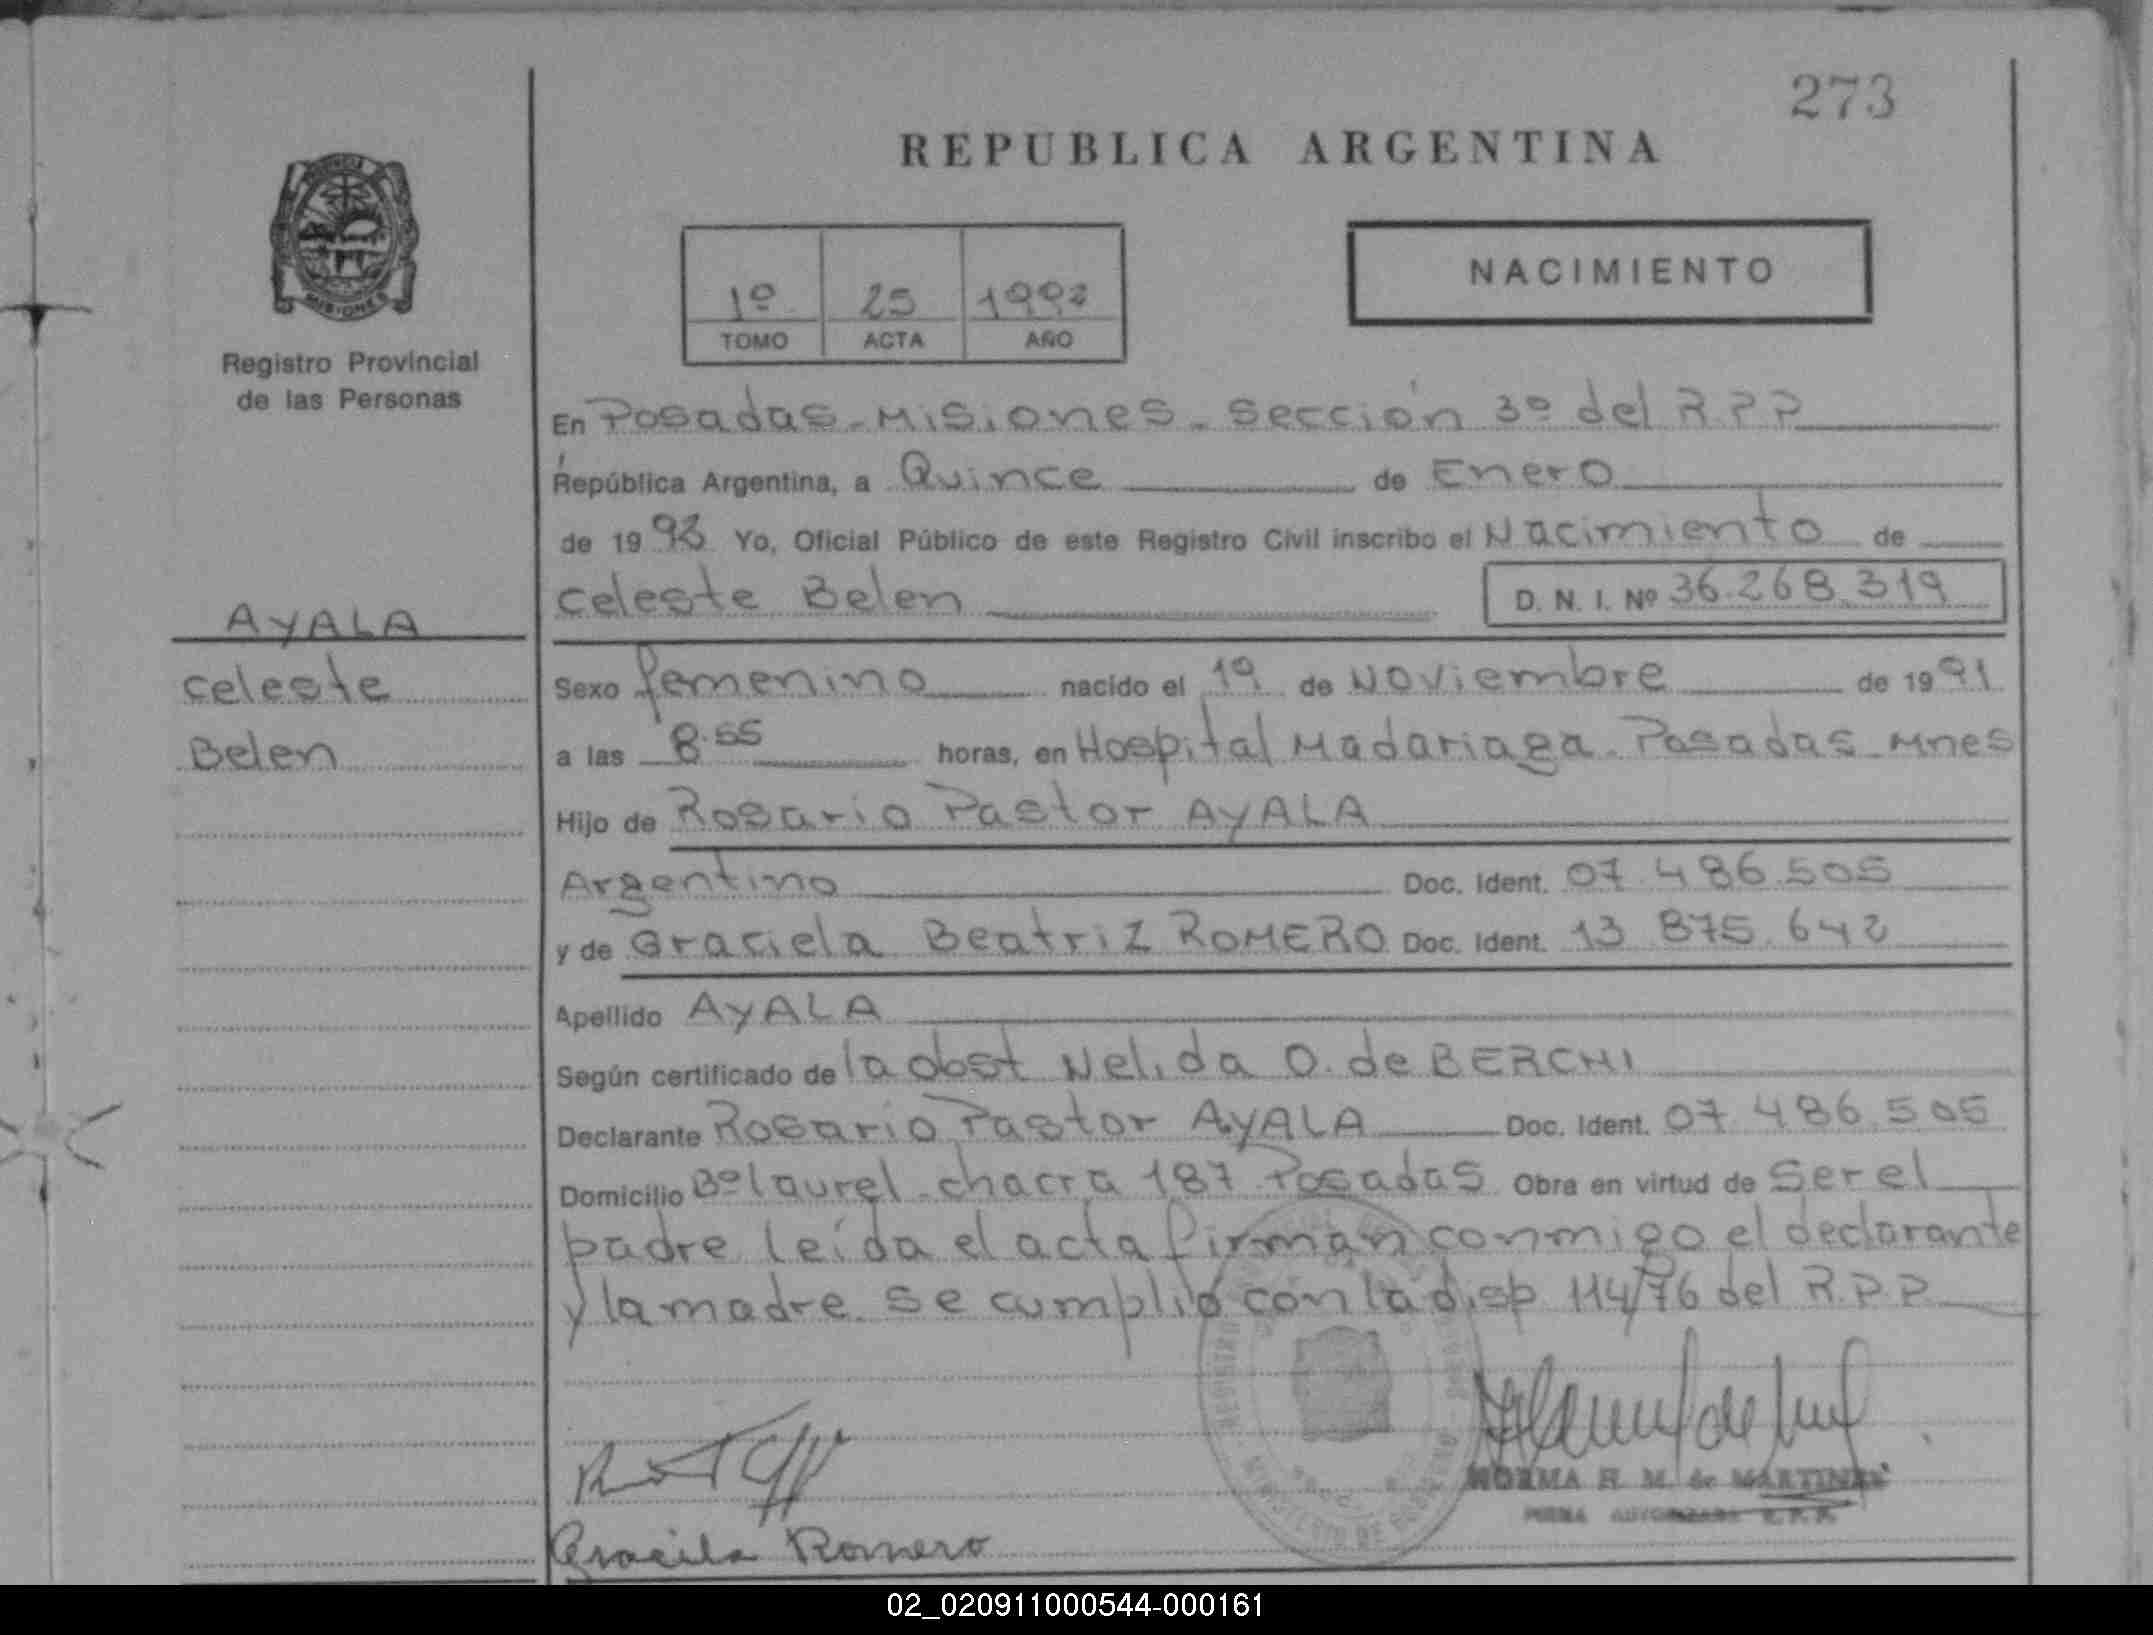 273
REPUBLICA ARGENTINA
PROVINCIA
MISIONES
Registro Provincial
de las Personas
1º 25
TOMO ACTA AÑO
NACIMIENTO
En Posadas - Misiones - Sección 3º del R.P.P
República Argentina, a Quince de Enero
de 19 Yo, Oficial Público de este Registro Civil inscribo el Nacimiento de
Celeste Belen D. N. I. Nº 36.268.319
AYALA
Celeste
Belen
Sexo femenino nacido el 19 de Noviembre de 1991
a las 8.55 horas, en Hospital Madariaga - Posadas Mnes
Hijo de Rosario Pastor AYALA
Argentino Doc. Ident. 07.486.505
y de Graciela Beatriz ROMERO Doc. Ident. 13 875.642
Apellido AYALA
Según certificado de la obst Nelida O. de BERCHI
Declarante Rosario Pastor AYALA Doc. Ident. 07.486.505
Domicilio Bº laurel - chacra 187 Posadas Obra en virtud de Ser el
padre leída el acta firman conmigo el declarante
y la madre. se cumplió con la disp 114/76 del R.P.P
NORMA H. M. de MARTINEZ
Graciela Romero
02_020911000544-000161